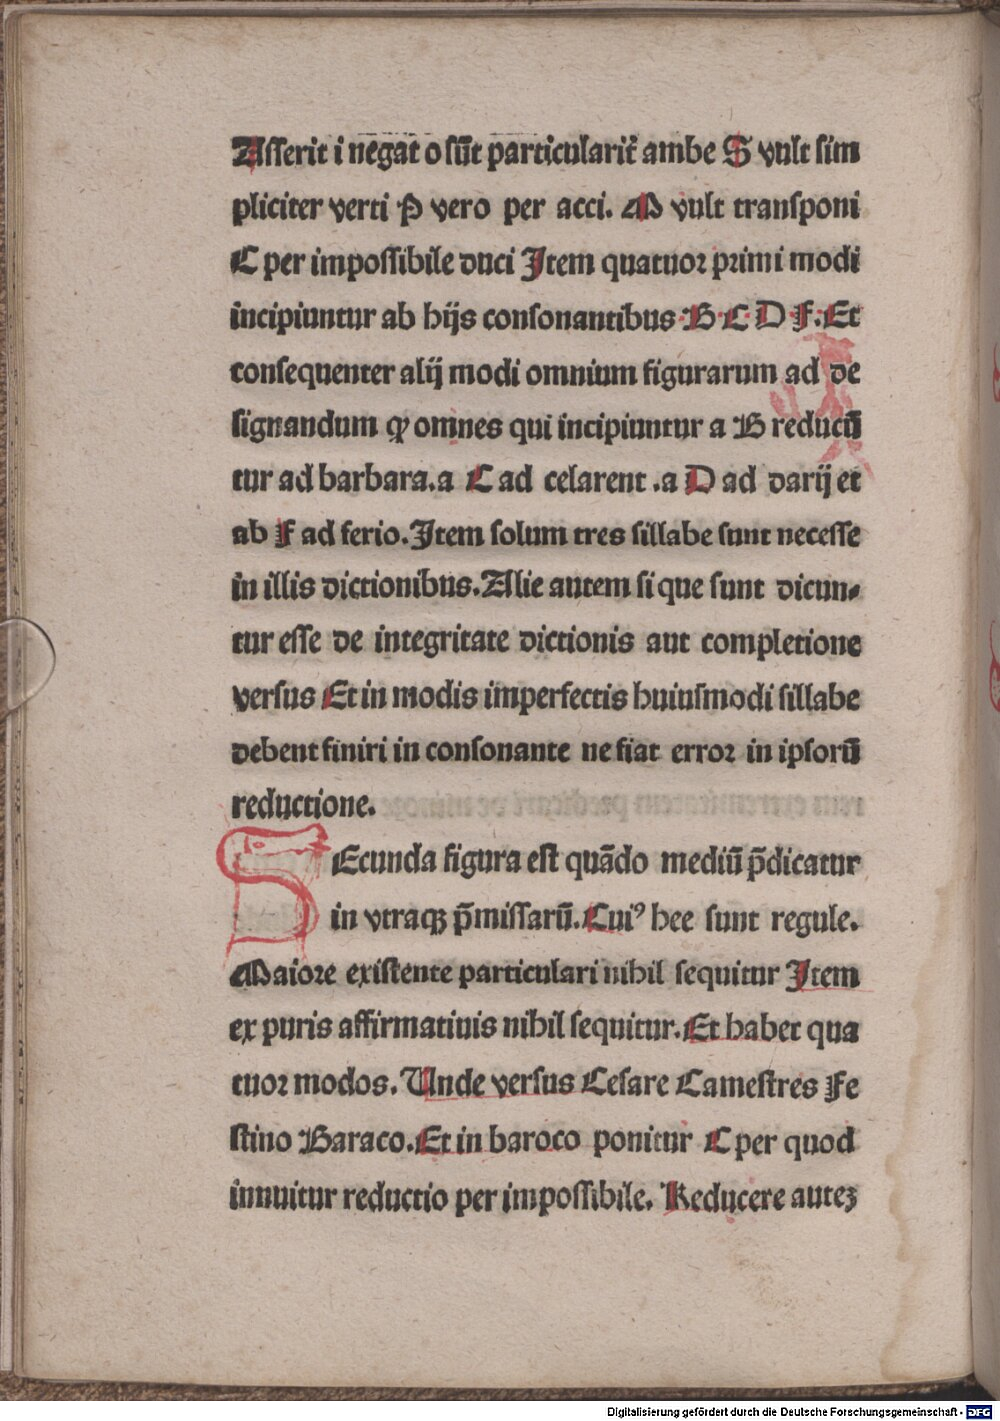 Asserit i negat o sūt particularit̄ ambe S vult sim
pliciter verti P vero per acci. M vult transponi
C per impossibile duci Item quatuor primi modi
incipiuntur ab hijs consonantibus B C D F. Et
consequenter alij modi omnium figurarum ad de
signandum ꝙ omnes qui incipiuntur a B reducū
tur ad barbara. a C ad celarent .a D ad darij et
ab F ad ferio. Item solum tres sillabe sunt necesse
in illis dictionibus. Alie autem si que sunt dicun⸗
tur esse de integritate dictionis aut completione
versus Et in modis imperfectis huiusmodi sillabe
debent finiri in consonante ne fiat error in ipsorū
reductione.
SEcunda figura est quādo mediū p̄dicatur
in vtraqꝫ p̄missarū. Cuiꝰ hee sunt regule.
Maiore existente particulari nihil sequitur Item
ex puris affirmatiuis nihil sequitur. Et habet qua
tuor modos. Unde versus Cesare Camestres Fe
stino Baraco. Et in baroco ponitur C per quod
innuitur reductio per impossibile. Reducere auteꝫ
Digitalisierung gefördert durch die Deutsche Forschungsgemeinschaft - DFG